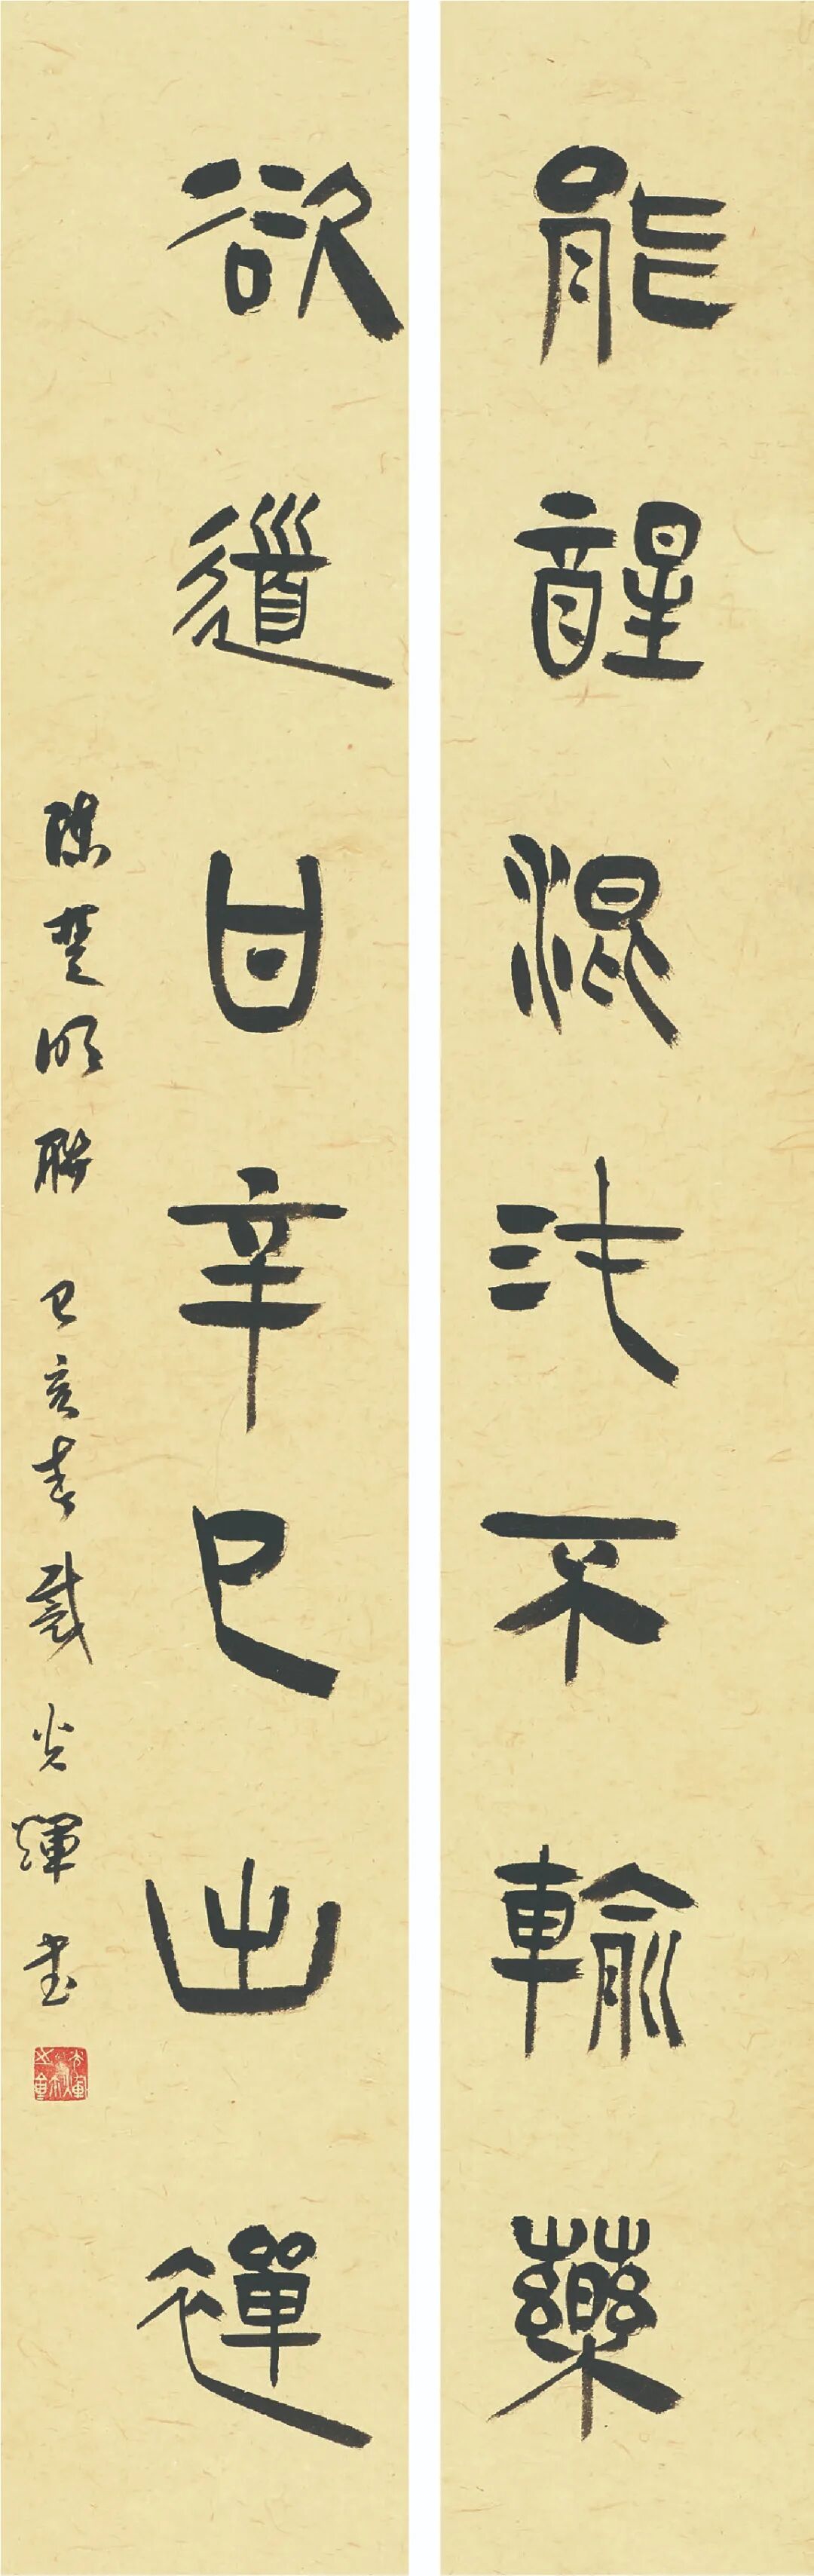 能醒混沌不輸藥
欲道甘辛已出禪
陳楚明聯 己亥春 戴光輝書